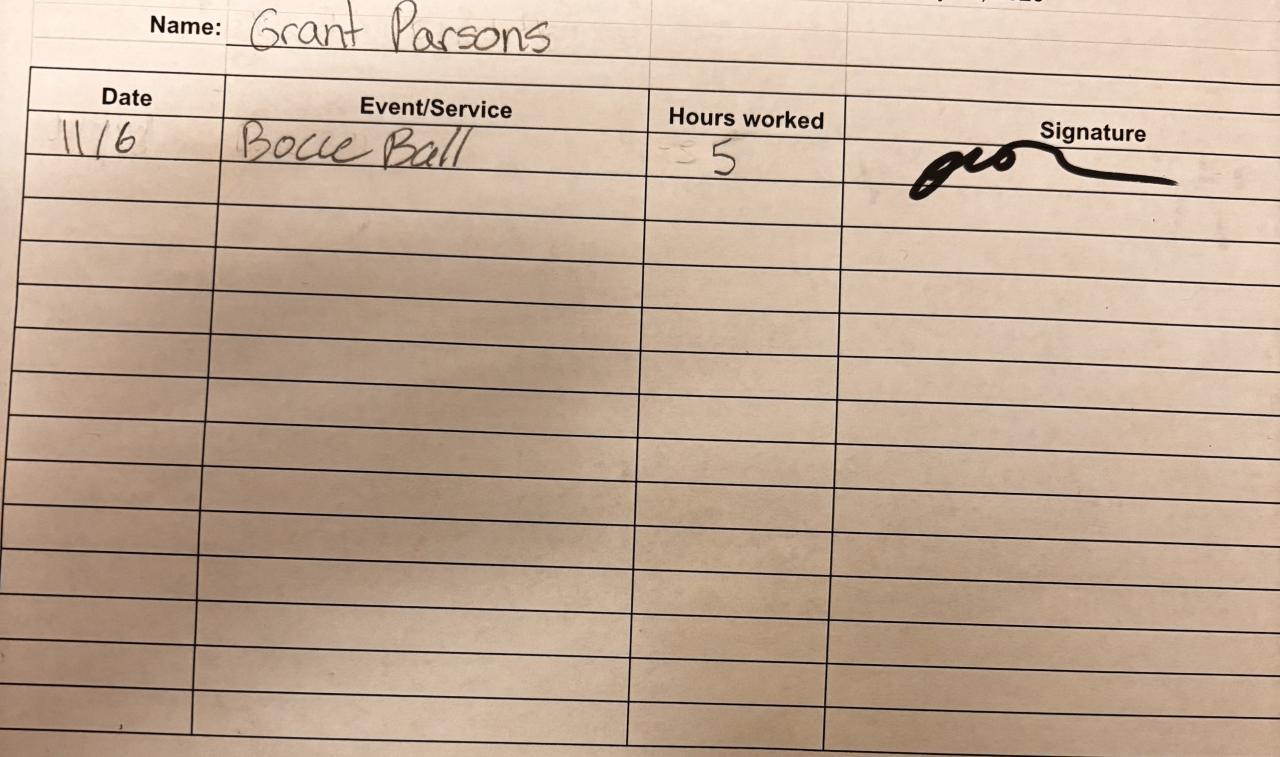 Name: Grant Parsons
Date Event/Service Hours worked Signature
11/6 Bocce Ball 5